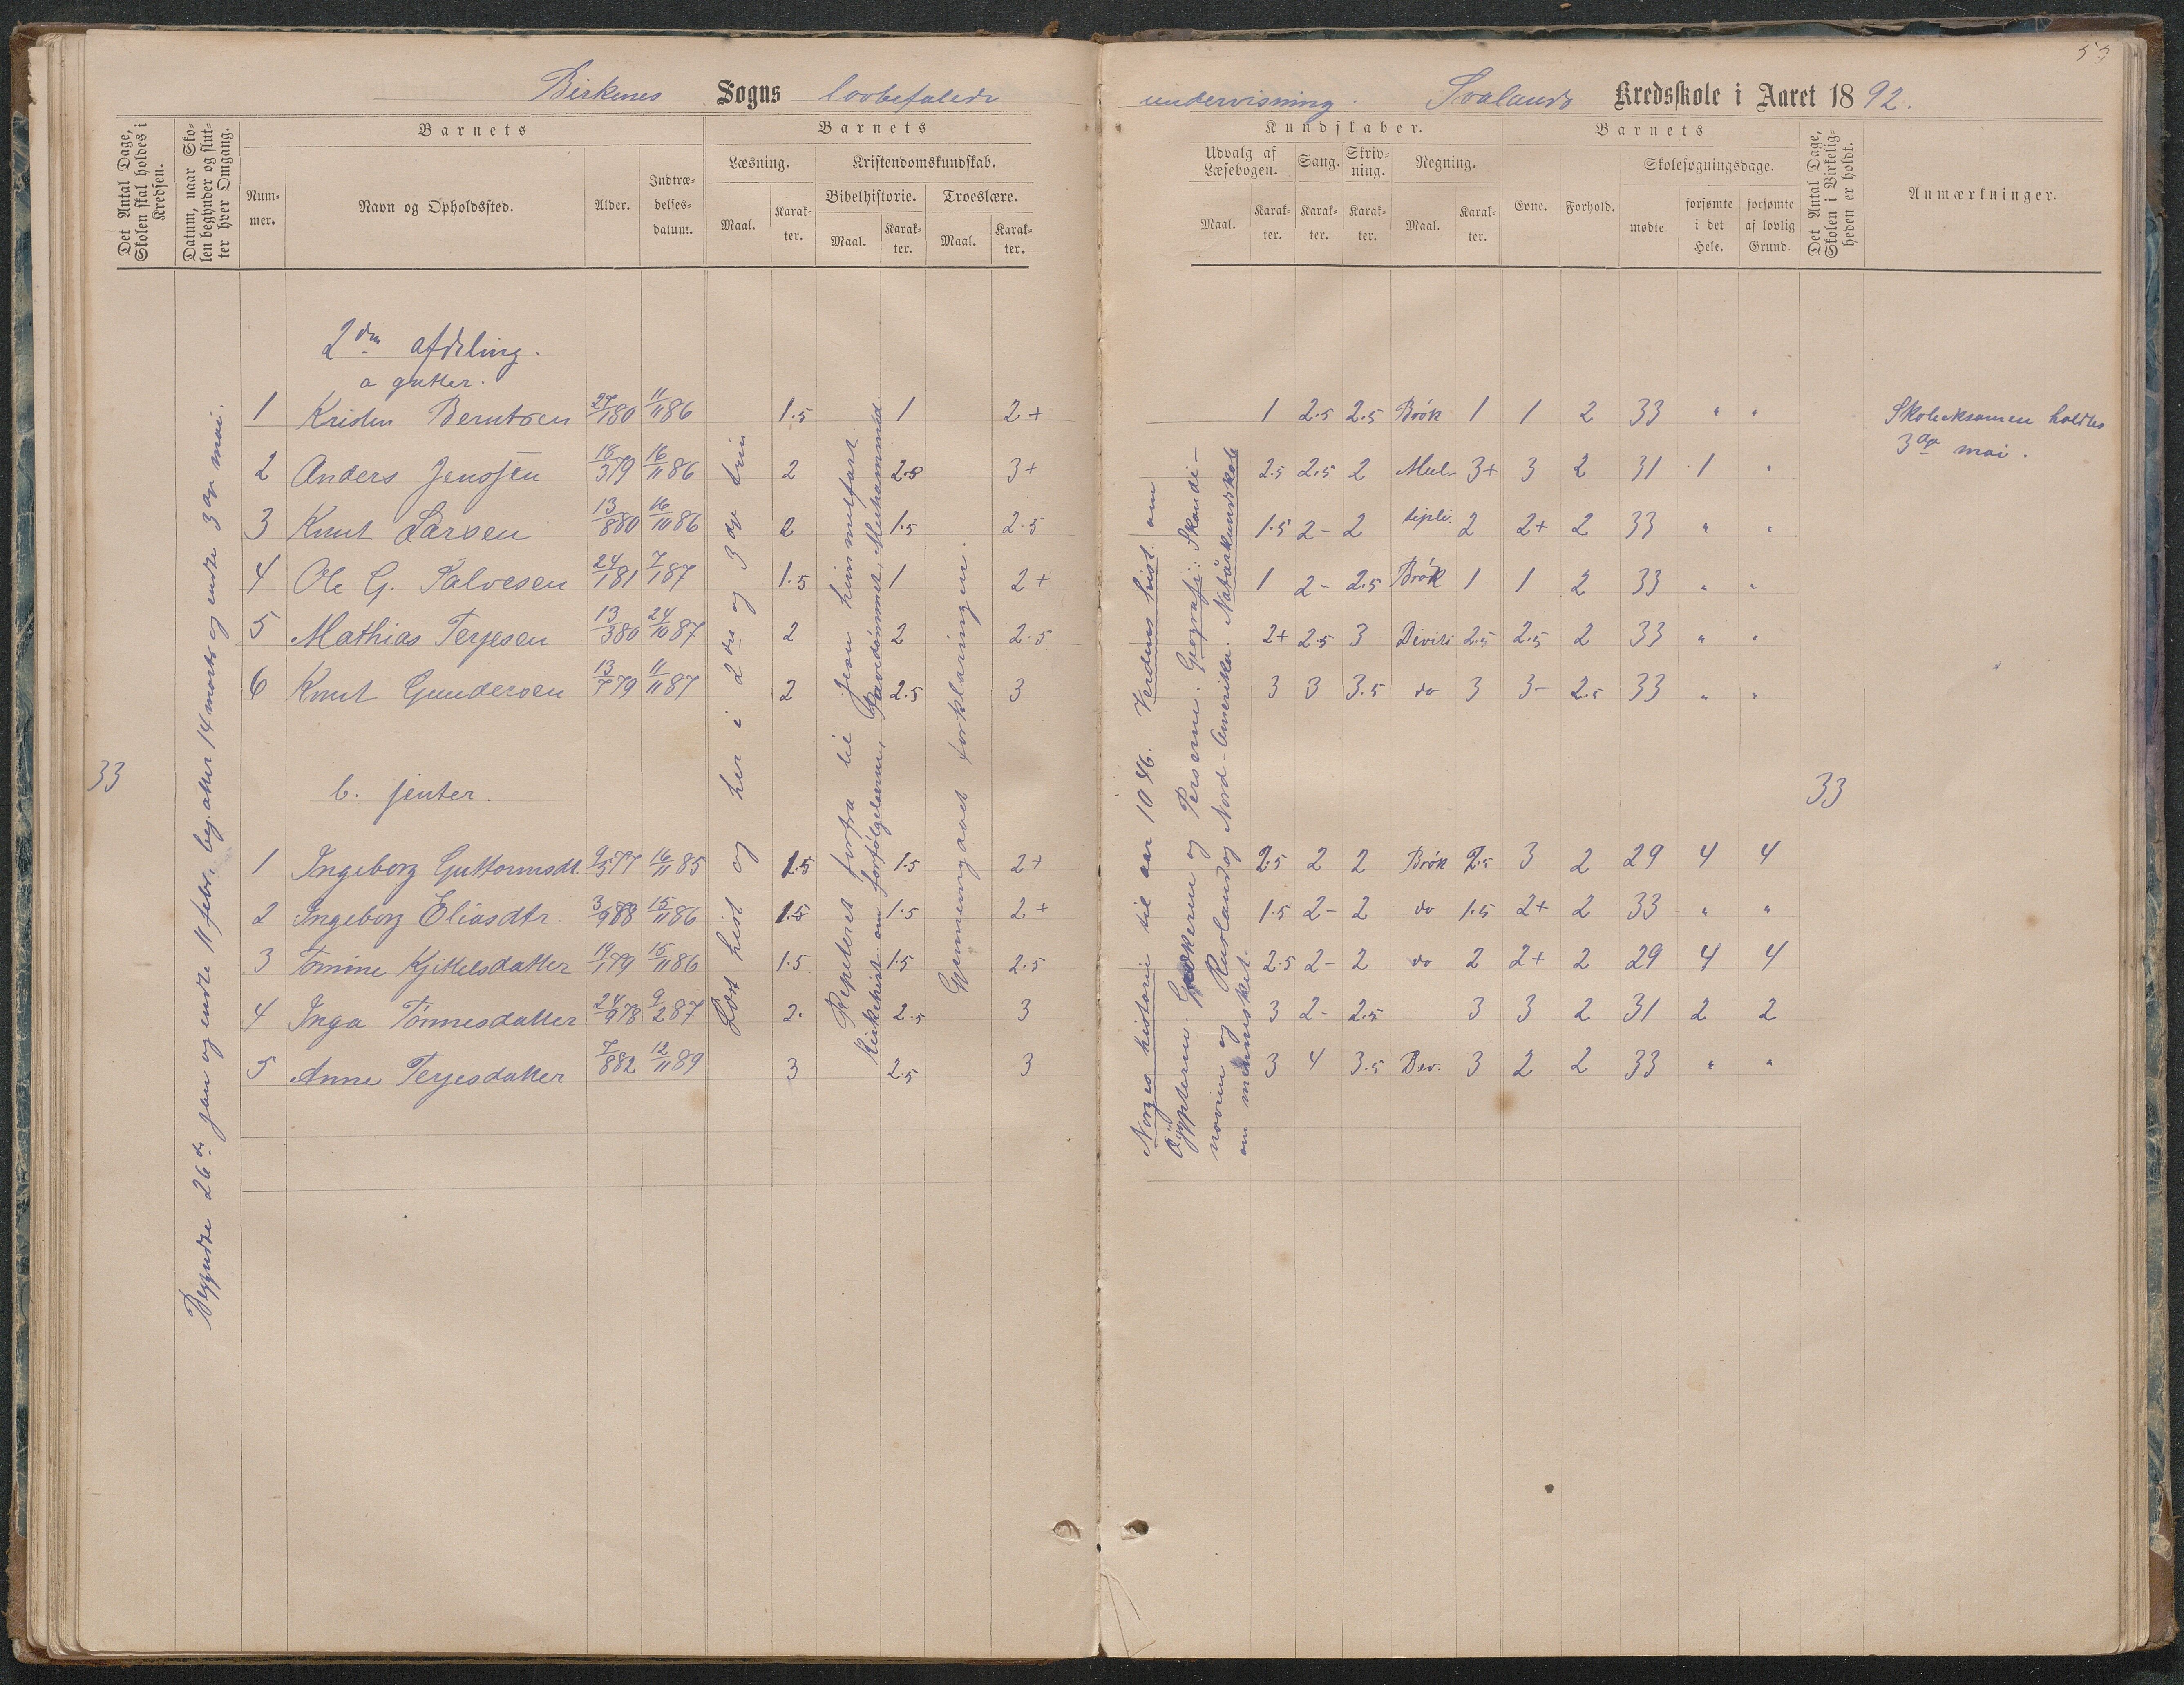 53
Birkenes Sogns lovbefalede undervisning. Svalands Kredsskole i Aaret 1892.
Det Antal Dage, Skolen skal holdes i Kredsen.
Datum, naar Skolen begynder og slutter hver Omgang.
Barnets
Nummer.
Navn og Opholdssted.
Alder.
Indtrædelsesdatum.
Barnets
Læsning.
Maal.
Karakter.
Kristendomskundskab.
Bibelhistorie.
Maal.
Karakter.
Troeslære.
Maal.
Karakter.
Kundskaber.
Udvalg af Læsebogen.
Maal.
Karakter.
Sang.
Karakter.
Skrivning.
Karakter.
Regning.
Maal.
Karakter.
Barnets
Evne.
Forhold.
Skolesøgningsdage.
mødte
forsømte i det Hele.
forsømte af lovlig Grund.
Det Antal Dage, Skolen i Virkeligheden er holdt.
Anmærkninger.
2den afdeling.
a gutter.
1 Kristen Berntsen 27/1 80 11/11 86 1.5 1 2+ 1 2.5 2.5 Brök 1 1 2 33 " "
2 Anders Jenssen 18/3 79 16/11 86 2 2.5 3+ 2.5 2.5 2 Mul- 3+ 3 2 31 1 "
3 Knut Larsen 13/8 80 16/10 86 2 1.5 2.5 1.5 2- 2 tipli. 2 2+ 2 33 " "
4 Ole G. Talvesen 24/1 81 7/1 87 1.5 1 2+ 1 2- 2.5 Brök 1 1 2 33 " "
5 Mathias Terjesen 13/3 80 24/10 87 2 2 2.5 2+ 2.5 3 Divisi 2.5 2.5 2 33 " "
6 Knut Gundersen 13/7 79 11/11 87 2 2.5 3 3 3 3.5 do 3 3- 2.5 33 " "
Skoleeksamen holdtes
3die mai.
33
b. jenter.
33
1 Ingeborg Guttormsdt. 9/5 77 16/11 85 1.5 1.5 2+ 2.5 2 2 Brök 2.5 3 2 29 4 4
2 Ingeborg Eliasdtr. 3/9 88 15/11 86 1.5 1.5 2+ 1.5 2- 2 do 1.5 2+ 2 33 " "
3 Tomine Kjittelsdatter 19/1 79 15/11 86 1.5 1.5 2.5 2.5 2- 2 do 2 2+ 2 29 4 4
4 Inga Tönnesdatter 24/9 78 9/2 87 2. 2.5 3 3 2- 2.5 3 3 2 31 2 2
5 Anne Terjesdatter 7/8 82 12/11 89 3 2.5 3 3 4 3.5 Dev. 3 2 2 33 " "
Begyndte 26de jan og endte 11 febr, beg. atter 14 marts og endte 3die mai.
Læst hist og her i 2det og 3die trin
Repeteret forfra til Jesu himmelfart.
Kirkehist. om forfölgelserne, Pavedömmet, Muhammmed.
Gjennemgaaet forklaringen.
Norges historie til aar 1046. Verdens hist. om
Ægypterne. Grækerne og Perserne. Geografi: Skandi-
navien og Rusland og Nord-Amerika. Naturkundskab
om mennesket.